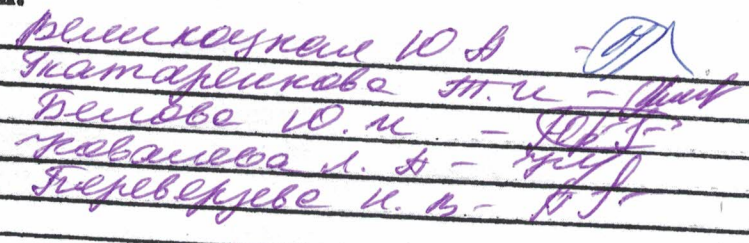 Великоцкая Ю А -
Екатаренкова Т. И -
Белова Ю. И -
Ковалева Л. А -
Переверзева Н. В -